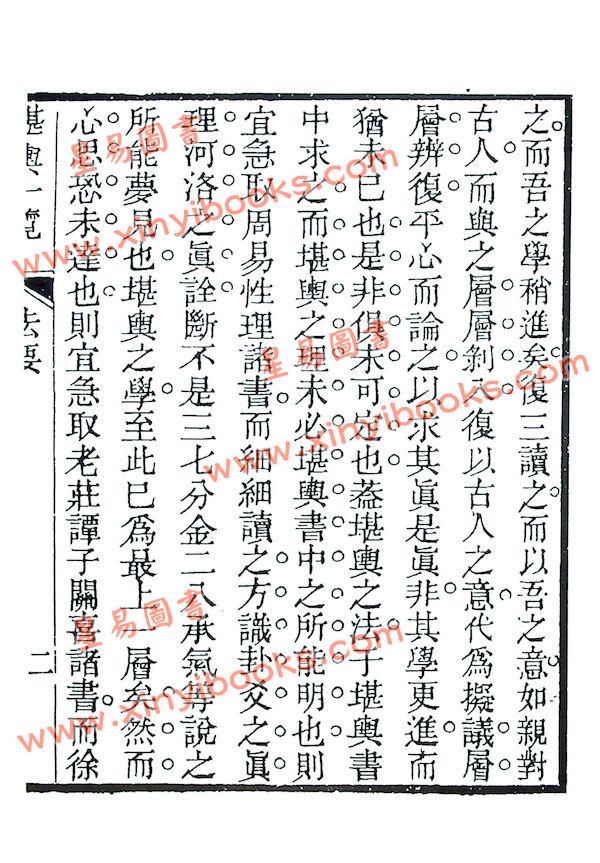 之而吾之學稍進矣復三讀之而以吾之意如親對
古人而與之層層剝入復以古人之意代爲擬議層
層辨復平心而論之以求其眞是眞非其學更進而
猶未已也是非俱未可定也葢堪輿之法于堪輿書
中求之而堪輿之理未必堪輿書中之所能明也則
宜急取周易性理諸書而細細讀之方識卦爻之眞
理河洛之眞詮斷不是三七分金二八承氣等說之
所能夢見也堪輿之學至此已爲最上一層矣然而
心思恐未達也則宜急取老莊譚子關喜諸書而徐
堪輿一覽 法要 二
星易圖書
www.xinyibooks.com
星易圖書
www.xinyibooks.com
星易圖書
www.xinyibooks.com